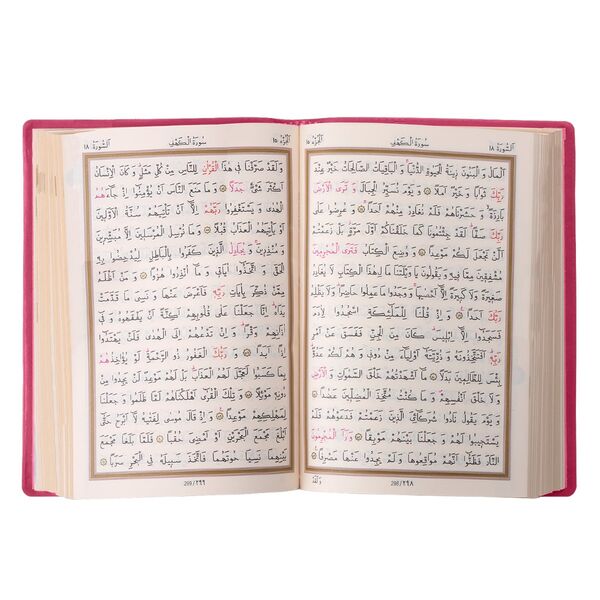 اَلْجُزْءُ ١٥
سُورَةُ الْكَهْفِ
اَلسُّورَةُ ١٨
اَلْمَالُ وَ الْبَنُونَ زِينَةُ الْحَيٰوةِ الدُّنْيَا وَ الْبَاقِيَاتُ الصَّالِحَاتُ خَيْرٌ عِنْدَ
رَبِّكَ ثَوَابًا وَ خَيْرٌ اَمَلًا وَ يَوْمَ نُسَيِّرُ الْجِبَالَ وَ تَرَى الْاَرْضَ
بَارِزَةً وَ حَشَرْنَاهُمْ فَلَمْ نُغَادِرْ مِنْهُمْ اَحَدًا وَ عُرِضُوا عَلٰى
رَبِّكَ صَفًّا لَقَدْ جِئْتُمُونَا كَمَا خَلَقْنَاكُمْ اَوَّلَ مَرَّةٍ بَلْ زَعَمْتُمْ
اَلَّنْ نَجْعَلَ لَكُمْ مَوْعِدًا وَ وُضِعَ الْكِتَابُ فَتَرَى الْمُجْرِمِينَ
مُشْفِقِينَ مِمَّا فِيهِ وَ يَقُولُونَ يَا وَيْلَتَنَا مَالِ هٰذَا الْكِتَابِ لَا يُغَادِرُ
صَغِيرَةً وَ لَا كَبِيرَةً اِلَّا اَحْصٰيهَا وَ وَجَدُوا مَا عَمِلُوا حَاضِرًا وَ لَا يَظْلِمُ
رَبُّكَ اَحَدًا وَ اِذْ قُلْنَا لِلْمَلٰئِكَةِ اسْجُدُوا لِاٰدَمَ
فَسَجَدُوا اِلَّا اِبْلِيسَ كَانَ مِنَ الْجِنِّ فَفَسَقَ عَنْ اَمْرِ
رَبِّهِ اَفَتَتَّخِذُونَهُ وَ ذُرِّيَّتَهُ اَوْلِيَاءَ مِنْ دُونِي وَ هُمْ لَكُمْ عَدُوٌّ
بِئْسَ لِلظَّالِمِينَ بَدَلًا مَا اَشْهَدْتُهُمْ خَلْقَ السَّمٰوَاتِ وَ الْاَرْضِ
وَ لَا خَلْقَ اَنْفُسِهِمْ وَ مَا كُنْتُ مُتَّخِذَ الْمُضِلِّينَ عَضُدًا
وَ يَوْمَ يَقُولُ نَادُوا شُرَكَائِيَ الَّذِينَ زَعَمْتُمْ فَدَعَوْهُمْ فَلَمْ
يَسْتَجِيبُوا لَهُمْ وَ جَعَلْنَا بَيْنَهُمْ مَوْبِقًا وَ رَاَ الْمُجْرِمُونَ
النَّارَ فَظَنُّوا اَنَّهُمْ مُوَاقِعُوهَا وَ لَمْ يَجِدُوا عَنْهَا مَصْرِفًا
298/٢٩٨
وَ لَقَدْ
اَلْجُزْءُ ١٥
سُورَةُ الْكَهْفِ
اَلسُّورَةُ ١٨
وَ لَقَدْ صَرَّفْنَا فِي هٰذَا الْقُرْاٰنِ لِلنَّاسِ مِنْ كُلِّ مَثَلٍ وَ كَانَ الْاِنْسَانُ
اَكْثَرَ شَيْءٍ جَدَلًا وَ مَا مَنَعَ النَّاسَ اَنْ يُؤْمِنُوا اِذْ جَاءَهُمُ
الْهُدٰى وَ يَسْتَغْفِرُوا رَبَّهُمْ اِلَّا اَنْ تَأْتِيَهُمْ سُنَّةُ الْاَوَّلِينَ
اَوْ يَأْتِيَهُمُ الْعَذَابُ قُبُلًا وَ مَا نُرْسِلُ الْمُرْسَلِينَ اِلَّا مُبَشِّرِينَ
وَ مُنْذِرِينَ وَ يُجَادِلُ الَّذِينَ كَفَرُوا بِالْبَاطِلِ لِيُدْحِضُوا بِهِ
الْحَقَّ وَ اتَّخَذُوا اٰيَاتِي وَ مَا اُنْذِرُوا هُزُوًا وَ مَنْ اَظْلَمُ
مِمَّنْ ذُكِّرَ بِاٰيَاتِ رَبِّهِ فَاَعْرَضَ عَنْهَا وَ نَسِيَ مَا قَدَّمَتْ
يَدَاهُ اِنَّا جَعَلْنَا عَلٰى قُلُوبِهِمْ اَكِنَّةً اَنْ يَفْقَهُوهُ وَ فِي
اٰذَانِهِمْ وَقْرًا وَ اِنْ تَدْعُهُمْ اِلَى الْهُدٰى فَلَنْ يَهْتَدُوا
اِذًا اَبَدًا وَ رَبُّكَ الْغَفُورُ ذُو الرَّحْمَةِ لَوْ يُؤَاخِذُهُمْ
بِمَا كَسَبُوا لَعَجَّلَ لَهُمُ الْعَذَابَ بَلْ لَهُمْ مَوْعِدٌ لَنْ يَجِدُوا مِنْ
دُونِهِ مَوْئِلًا وَ تِلْكَ الْقُرٰى اَهْلَكْنَاهُمْ لَمَّا ظَلَمُوا وَ جَعَلْنَا
لِمَهْلِكِهِمْ مَوْعِدًا وَ اِذْ قَالَ مُوسٰى لِفَتٰيهُ لَا اَبْرَحُ حَتّٰى
اَبْلُغَ مَجْمَعَ الْبَحْرَيْنِ اَوْ اَمْضِيَ حُقُبًا فَلَمَّا بَلَغَا مَجْمَعَ
بَيْنِهِمَا نَسِيَا حُوتَهُمَا فَاتَّخَذَ سَبِيلَهُ فِي الْبَحْرِ سَرَبًا
299/٢٩٩